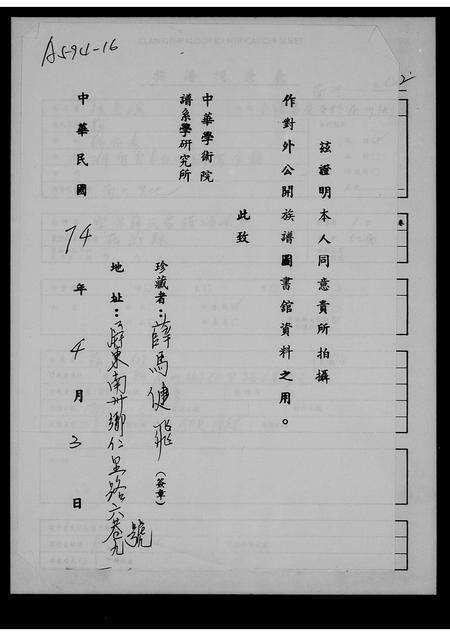 A594-16
茲證明本人同意貴所拍攝
作對外公開族譜圖書館資料之用。
此致
中華學術院
譜系學研究所
珍藏者：薛馬健飛（簽章）
地址：屏東南州鄉仁里路六巷九號
中華民國74年4月3日